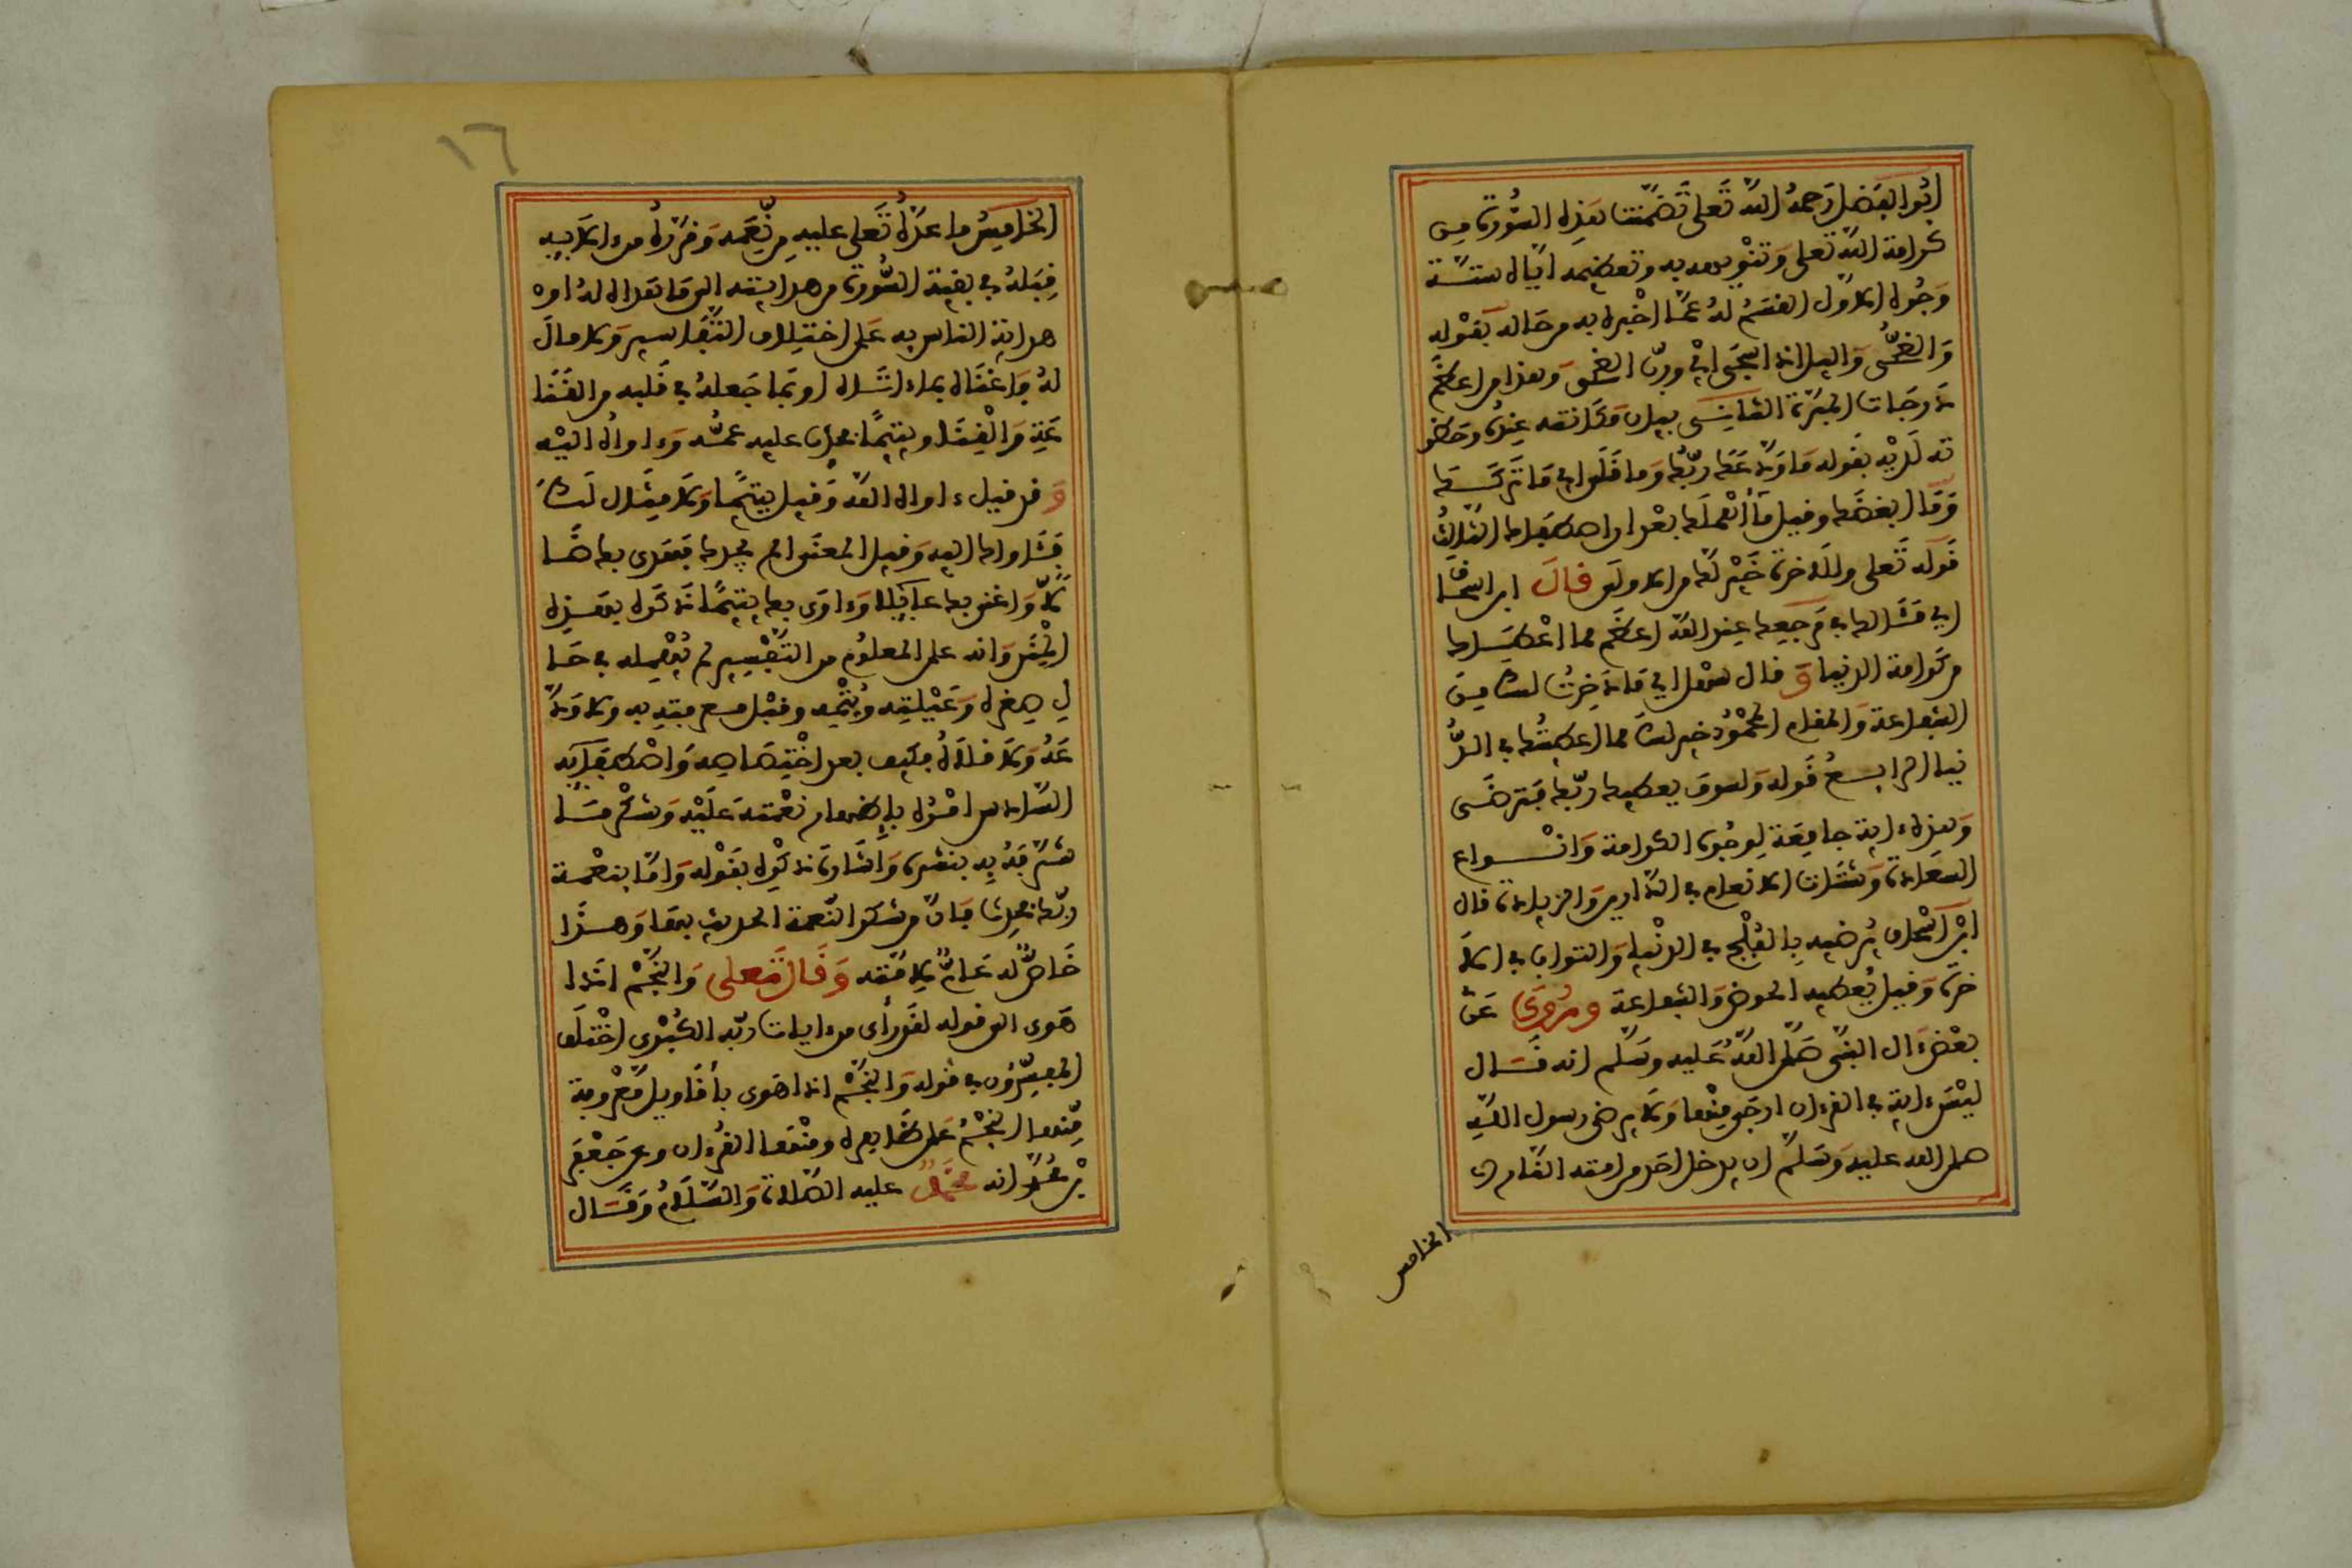 ابوا الفضل رحمه الله تعلى تضمنت هذه السورة من
كرامة الله تعلى وتنويهه به وتعظيمه اياه ستة
وجوه الاول القسم له عما اخبره به من حاله بقوله
والضحى واليل اذا سجى اي ورب الضحى وهذا من اعظم
درجات المبرة الثاني بيان مكانته عنده وحظو
ته لديه بقوله ما ودعك ربك وما قلى اي ما تركك
وقال بعضهم وقيل ما أهملك بعد ان اصطفاك الثالث
قوله تعلى وللاخرة خير لك من الاولى قال ابن اسحا
اي مئالك في مرجعك عند الله اعظم مما اعطاك
من كرامة الدنيا و قال سهل اي ما دخرت لك من
الشفاعة والمقام المحمود خير لك مما اعطيتك في الد
نيا الرابع قوله ولسوف يعطيك ربك فترضى
وهذه ءاية جامعة لوجوه الكرامة وانواع
السعادة وشتات الانعام في الدارين والزيادة قال
ابن اسحاق يرضيه بالفلج في الدنيا والثواب في الا
خرة وقيل يعطيه الحوض والشفاعة وروي عن
بعض ءال النبي صلى الله عليه وسلم انه قال
ليس ءاية في القرءان ارجى منها ولا يرضى رسول الله
صلى الله عليه وسلم ان يدخل احد من امته النار
الخامس
١٦
الخامس ما عده تعلى عليه من نعمه وقرره من ءالايه
قبله في بقية السورة من هدايته الى ما هداه له او
هداية الناس به على اختلاف التفاسير ولا مال
له فاغناه بما ءاتاه او بما جعله في قلبه من القنا
عة والغنى ويتيما فحدب عليه عمه وءاواه اليه
وقد قيل ءاواه الله وقيل يتيما لا مثال لك
فئاواك اليه وقيل المعنى الم يجدك فهدى بك ضا
لا واغنى بك عايلا وءاوى بك يتيما ذكره بهذه
المنن وانه على المعلوم من التفسير لم يهمله في حا
ل صغره وعيلته ويتمه وقبل معرفته به ولا ود
عه ولا قلاه فكيف بعد اختصاصه واصطفايه
السادس امره باظهار نعمته عليه وشكر ما
شرفه به بنشره واشادة ذكره بقوله واما بنعمة
ربك فحدث فان من شكر النعمة الحديث بها وهذا
خاص له عام لامته وقال تعلى والنجم اذا
هوى الى قوله لقد رأى من ءايات ربه الكبرى اختلف
المفسرون في قوله والنجم اذا هوى بأقاويل معروفة
منها النجم على ظاهره ومنها القرءان وعن جعفر
بن محمد انه محمد عليه الصلاة والسلام وقال